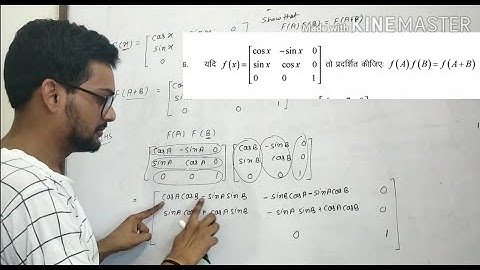 Show that
F(A) F(B) = F(A+B)
Made with KINEMASTER
यदि f(x) = [cos x -sin x 0
sin x cos x 0
0 0 1] तो प्रदर्शित कीजिए: f(A) f(B) = f(A+B)
F(x) = [cosx
sinx
0
F(A+B) =
F(A) F(B)
[cosA -sinA 0
sinA cosA 0
0 0 1] [cosB -sinB 0
sinB cosB 0
0 0 1]
= [cosA cosB - sinA sinB -sinB cosA - sinA cosB 0
sinA cosB + cosA sinB -sinA sinB + cosA cosB 0
0 1]